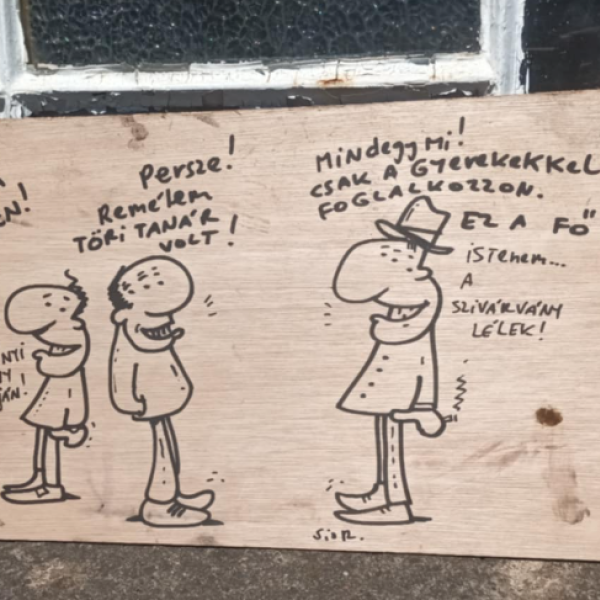 Persze!
Remélem
TÖRI TANÁR
VOLT!
MINDEGY MI!
CSAK A GYEREKEKKEL
FOGLALKOZZON.
EZ A FŐ
ISTENEM...
A
SZIVÁRVÁNY
LÉLEK!